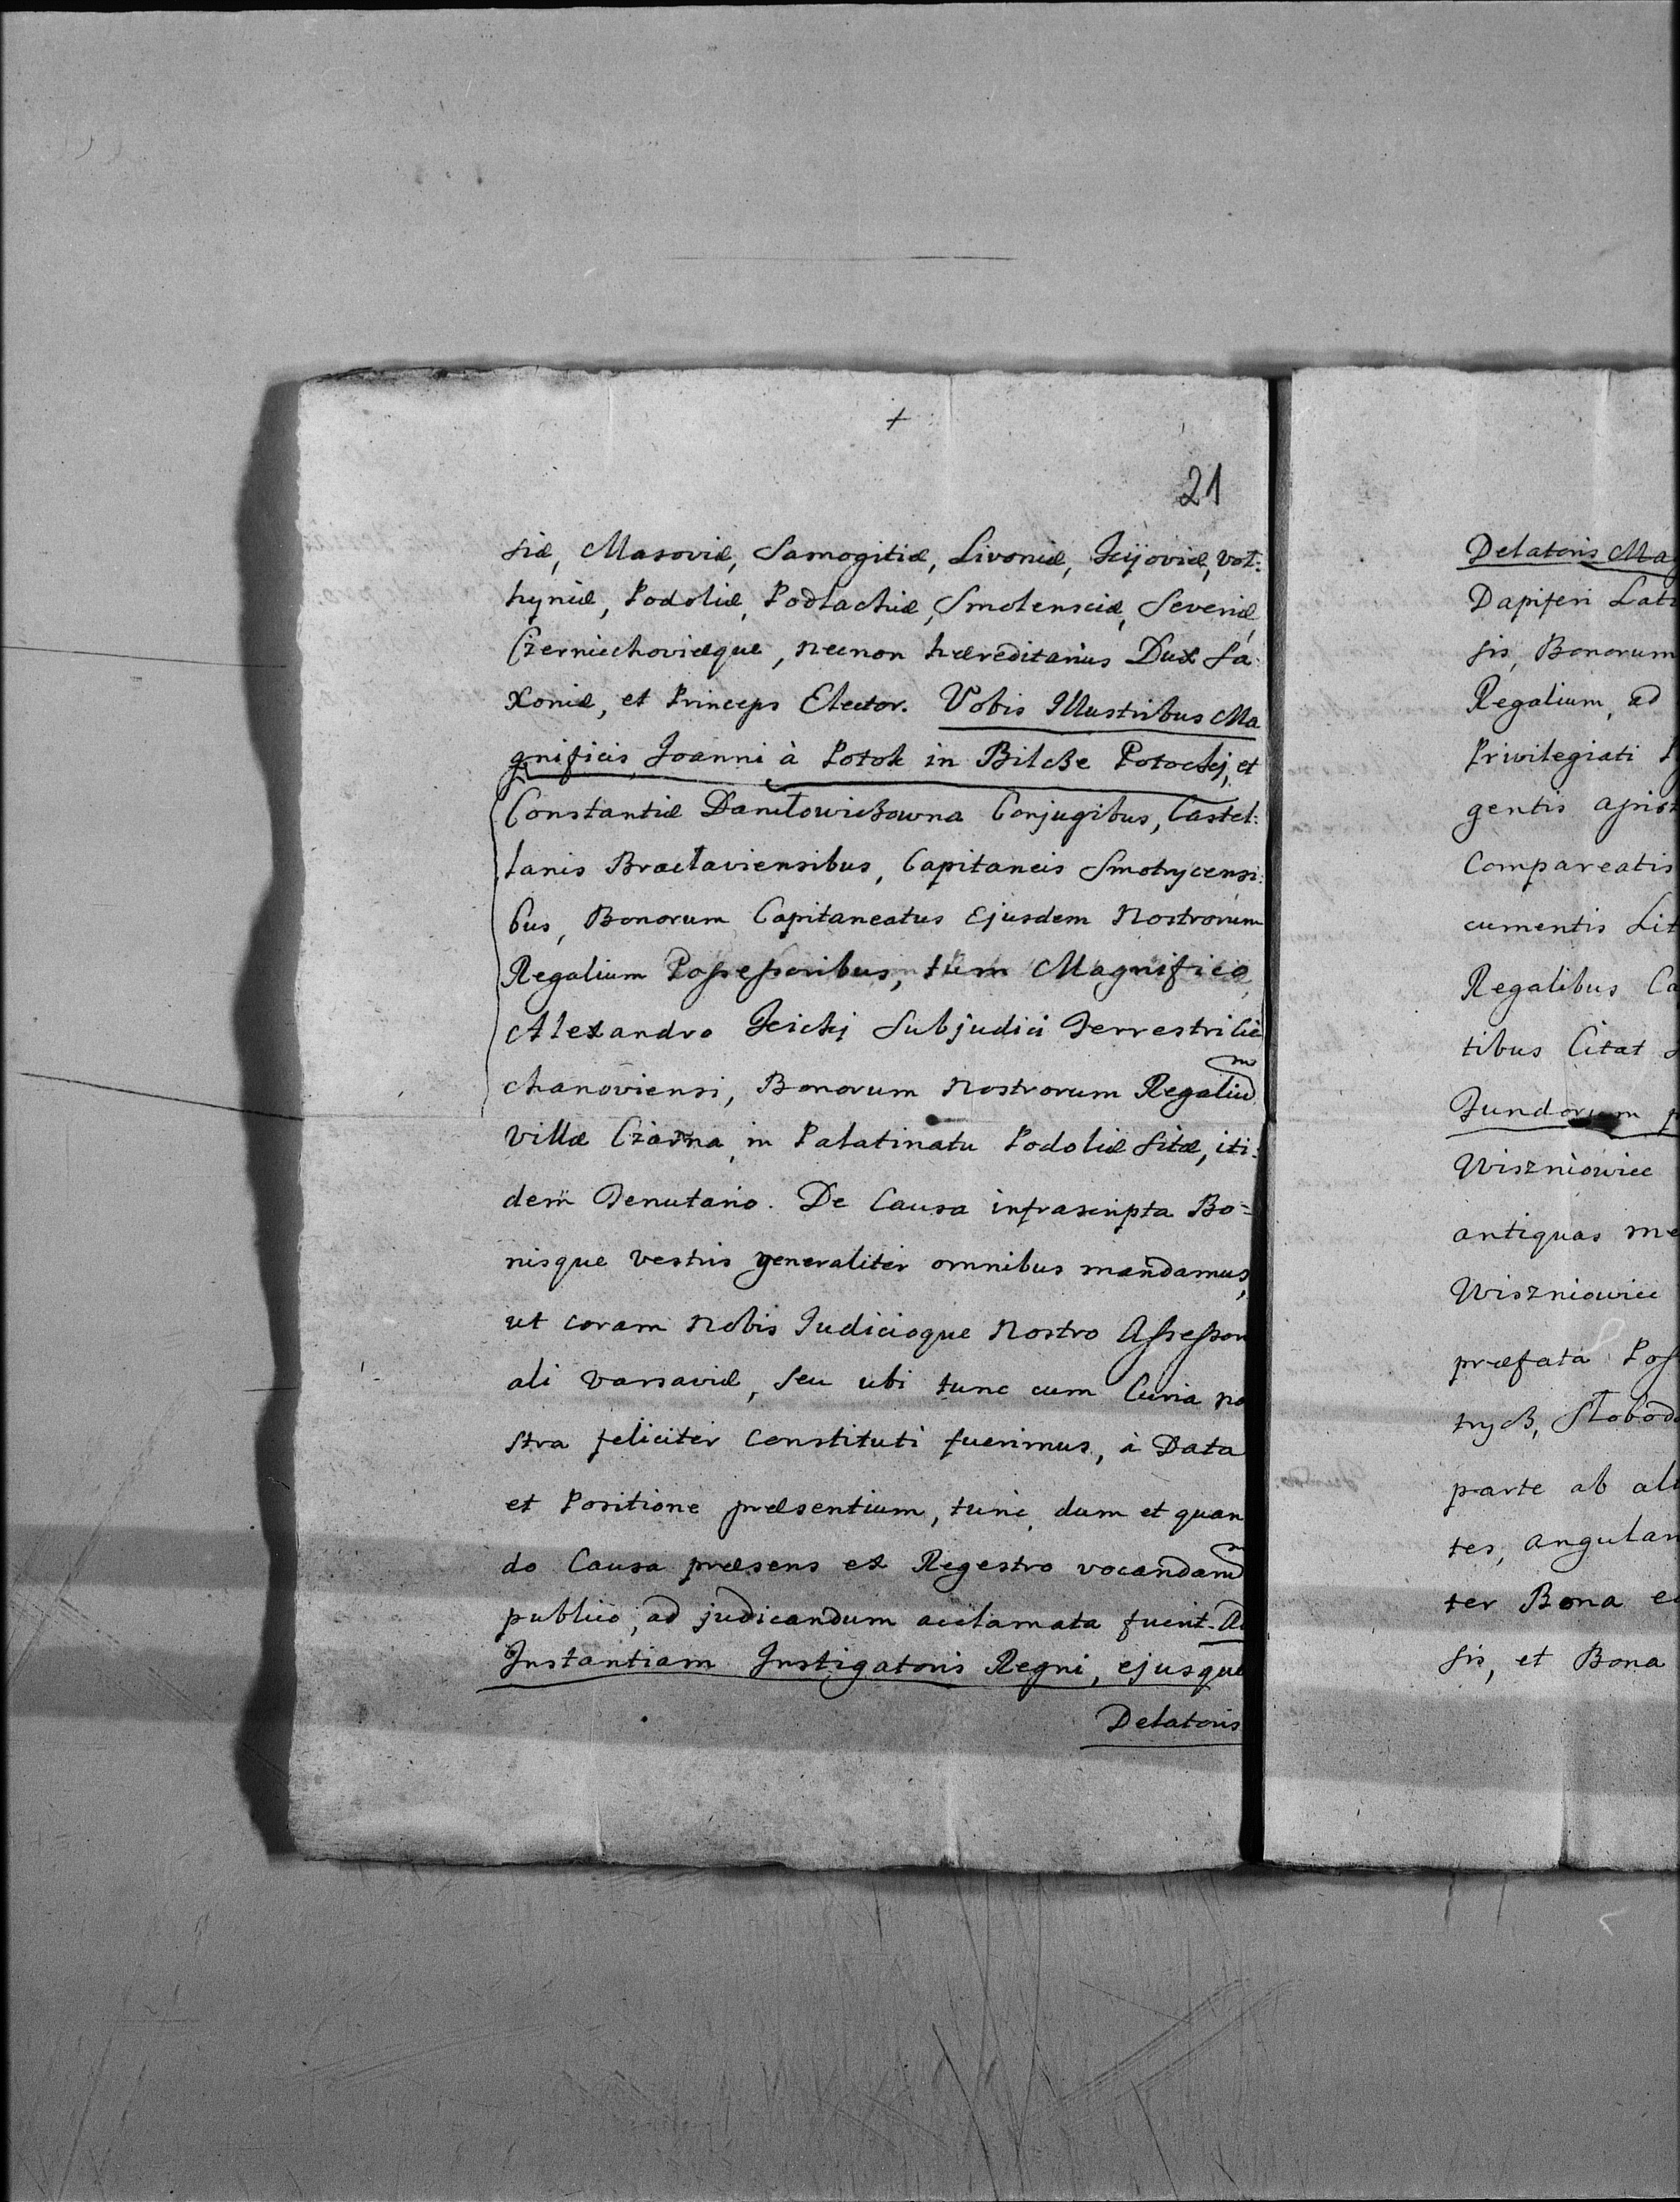 +
21
siæ, Masoviæ, Samogitiæ, Livoniæ, Kijoviæ, Vol:
hyniæ, Podoliæ, Podlachiæ, Smolensciæ, Severiæ,
Czerniechoviæque, necnon hæreditarius Dux Sa:
xoniæ, et Princeps Elector. Vobis Illustribus Ma
gnificis, Joanni à Potok in Bilcze Potockj, et
Constantiæ Daniłowiczowna Conjugibus, Castel:
lanis Bracłaviensibus, Capitaneis Smotrycensi:
bus, Bonorum Capitaneatus Ejusdem Nostrorum
Regalium Possessoribus, tum Magnifico
Alexandro Kickj Subjudici Terrestri Cie
chanoviensi, Bonorum Nostrorum Regalium
Villæ Czarna, in Palatinatu Podoliæ Sitæ, iti:
dem Tenutario. De Causa infrascripta Bo=
nisque vestris generaliter omnibus mandamus,
ut coram Nobis Judicioque Nostro Assessori
ali Varsaviæ, seu ubi tunc cum Curia no
stra feliciter Constituti fuerimus, à Data
et Positione præsentium, tunc, dum et quan
do Causa præsens ex Regestro vocandarum
publico, ad judicandum acclamata fuerit. Ad
Instantiam Instigatoris Regni, ejusque
Delatoris
Delatoris Mag
Dapiferi Lati
sis, Bonorum
Regalium, ad
Privilegiati P
gentis
Compareatis
cumentis Lit
Regalibus Ca
tibus Citat
Fundorum p
Wiszniowiec
antiquas me
Wiszniowiec
præfata Pos
trycz, Słoboda
parte ab ali
tes, angular
ter Bona
sis, et Bona